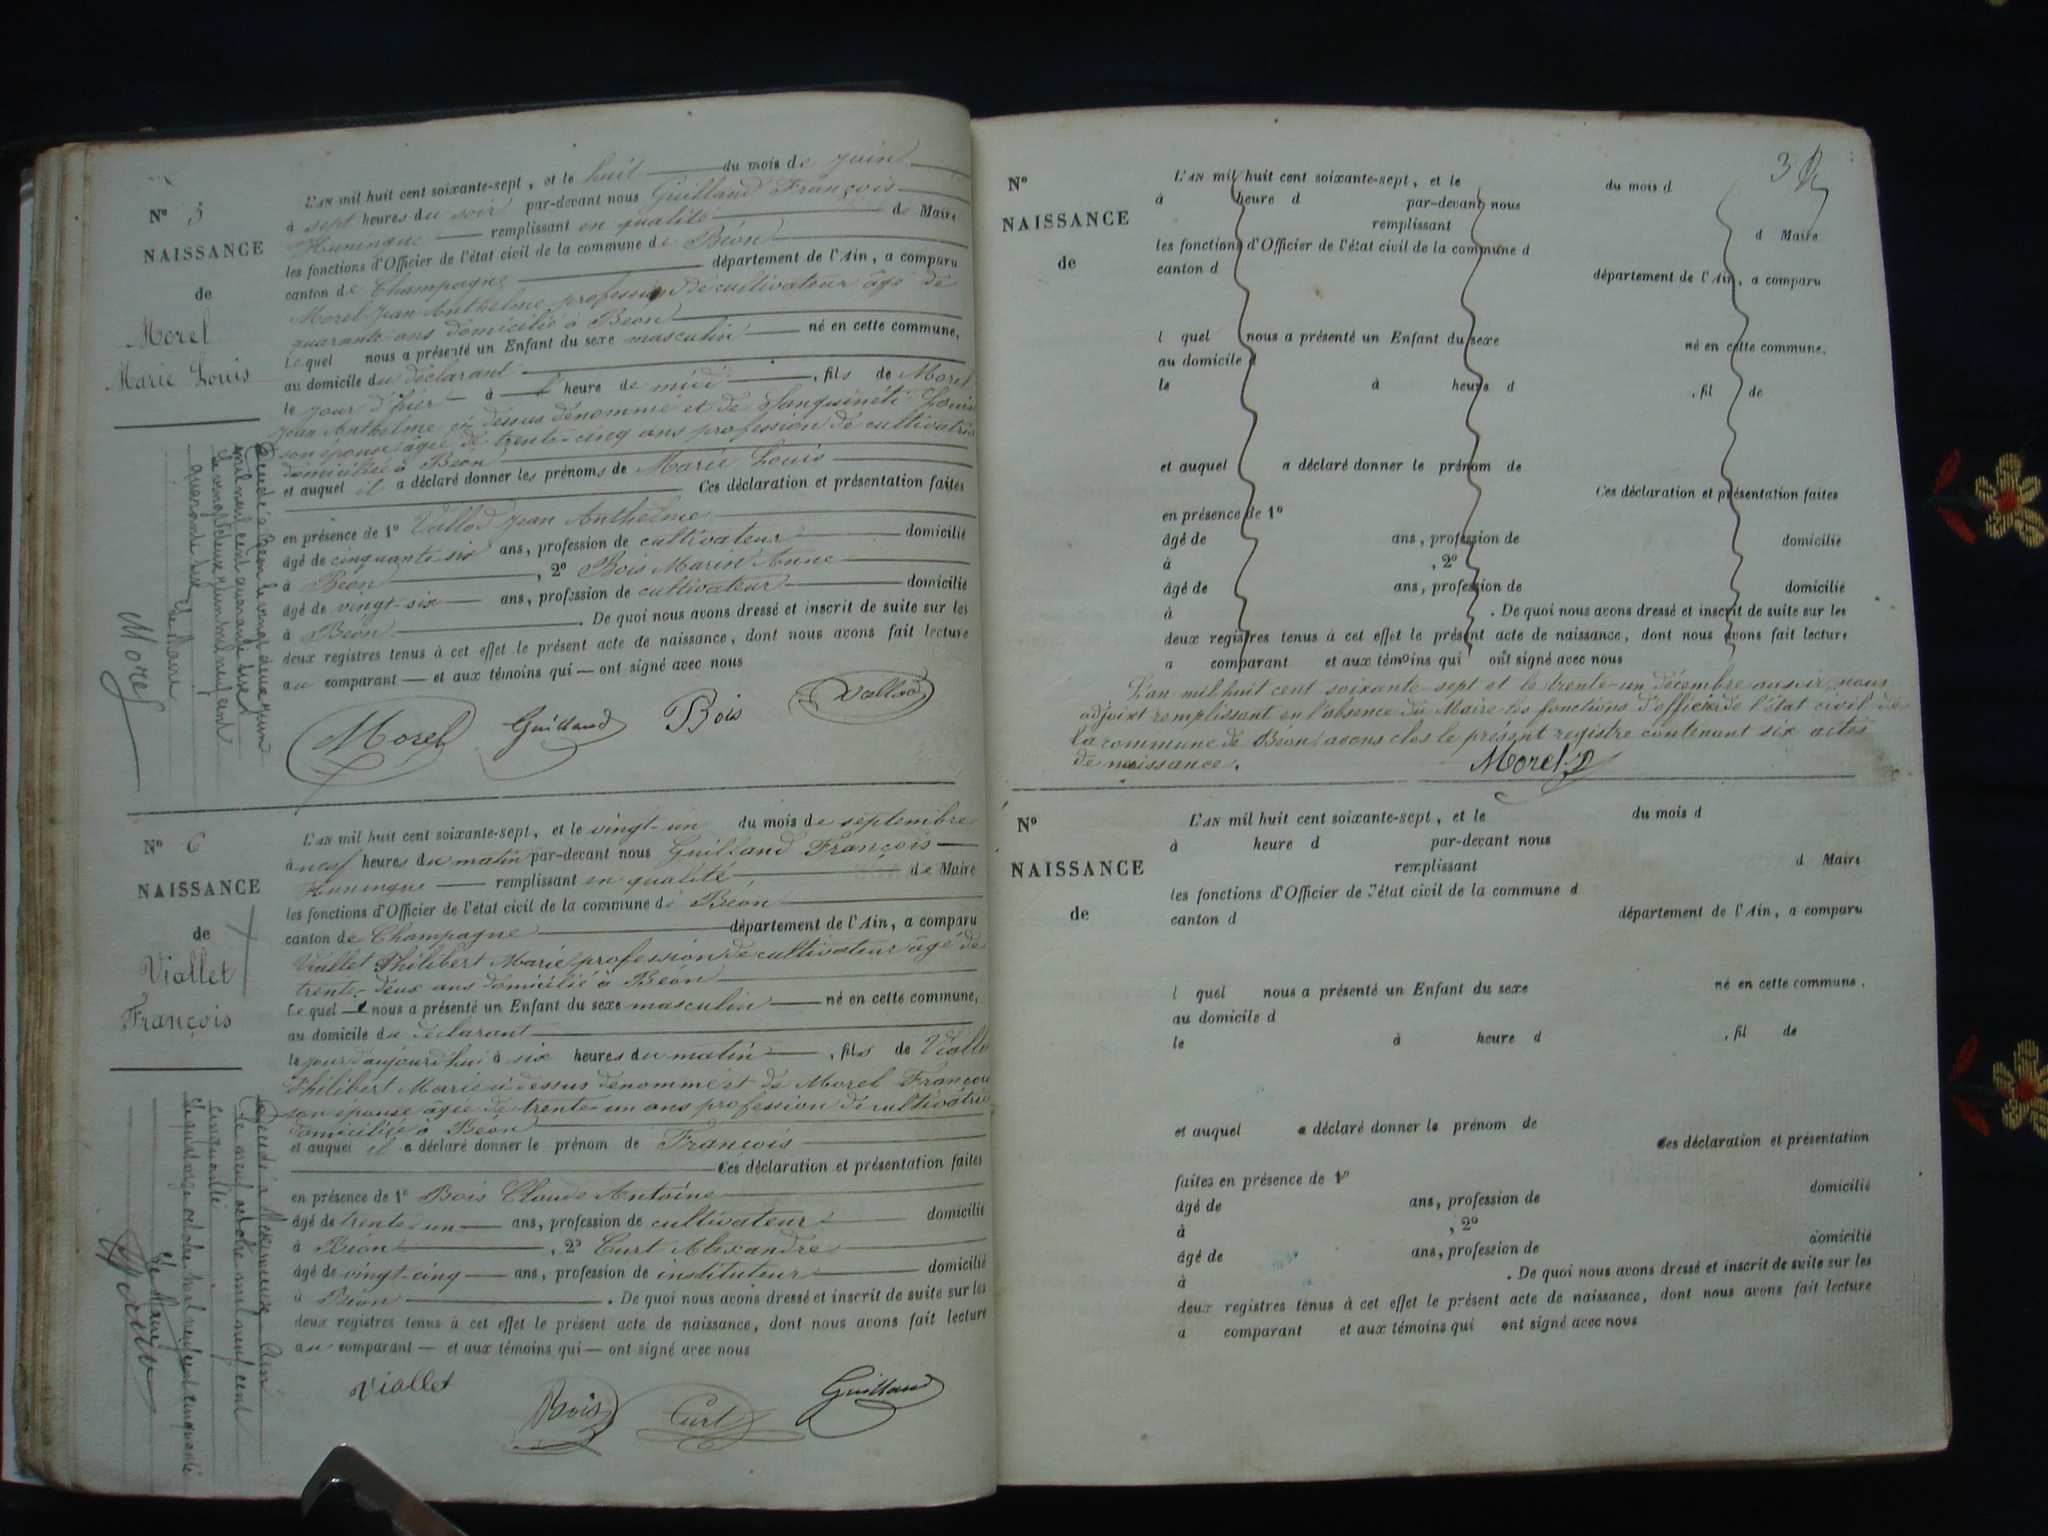 Nº 5
NAISSANCE
de
Morel
Marie Louis
L'AN mil huit cent soixante-sept, et le huit du mois de juin
à sept heures du soir par-devant nous Guilland François
Huningue remplissant en qualité de Maire
les fonctions d'Officier de l'état civil de la commune de Béon
canton de Champagne département de l'Ain, a comparu
Morel Jean Anthelme profession de cultivateur âgé de
quarante ans domicilié à Béon
Le quel nous a présenté un Enfant du sexe masculin né en cette commune,
au domicile du déclarant
le jour d'hier à l'heure de midi, fils de Morel
Jean Anthelme ci dessus dénommé et de Sanguinéti Louise
son épouse âgée de trente-cinq ans profession de cultivatrice
domiciliée à Béon
et auquel il a déclaré donner les prénoms de Marie Louis
Ces déclaration et présentation faites
en présence de 1º Vallod Jean Anthelme
âgé de cinquante-six ans, profession de cultivateur domicilié
à Béon, 2º Bois Marin Anne
âgé de vingt-six ans, profession de cultivateur domicilié
à Béon. De quoi nous avons dressé et inscrit de suite sur les
deux registres tenus à cet effet le présent acte de naissance, dont nous avons fait lecture
au comparant et aux témoins qui ont signé avec nous
Morel Guilland Bois Vallod
Décédé à Béon le vingt deux juin
mil neuf cent quarante six
Le vingt deux juin mil neuf cent
quarante six
Le Maire
Morel
Nº 6
NAISSANCE
de
Viallet
François
L'AN mil huit cent soixante-sept, et le vingt-un du mois de septembre
à neuf heures du matin par-devant nous Guilland François
Huningue remplissant en qualité de Maire
les fonctions d'Officier de l'état civil de la commune de Béon
canton de Champagne département de l'Ain, a comparu
Viallet Philibert Marie profession de cultivateur âgé de
trente-deux ans domicilié à Béon
Le quel nous a présenté un Enfant du sexe masculin né en cette commune,
au domicile du déclarant
le jour d'aujourd'hui à six heures du matin, fils de Viallet
Philibert Marie ci dessus dénommé et de Morel Françoise
son épouse âgée de trente-un ans profession de cultivatrice
domiciliée à Béon
et auquel il a déclaré donner le prénom de François
Ces déclaration et présentation faites
en présence de 1º Bois Claude Antoine
âgé de trente-un ans, profession de cultivateur domicilié
à Béon, 2º Curt Alexandre
âgé de vingt-cinq ans, profession de instituteur domicilié
à Béon. De quoi nous avons dressé et inscrit de suite sur les
deux registres tenus à cet effet le présent acte de naissance, dont nous avons fait lecture
au comparant et aux témoins qui ont signé avec nous
Viallet Bois Curt Guilland
Décédé à Meximieux Ain
le neuf octobre mil neuf cent
cinquante
le quatorze octobre mil neuf cent cinquante
Le Maire
3
Nº
NAISSANCE
de
L'AN mil huit cent soixante-sept, et le du mois d
à heure d par-devant nous
remplissant d Maire
les fonctions d'Officier de l'état civil de la commune d
canton d département de l'Ain, a comparu
l quel nous a présenté un Enfant du sexe né en cette commune,
au domicile d
le à heure d , fil de
et auquel a déclaré donner le prénom de
Ces déclaration et présentation faites
en présence de 1º
âgé de ans, profession de domicilié
à , 2º
âgé de ans, profession de domicilié
à . De quoi nous avons dressé et inscrit de suite sur les
deux registres tenus à cet effet le présent acte de naissance, dont nous avons fait lecture
a comparant et aux témoins qui ont signé avec nous
L'an mil huit cent soixante-sept et le trente-un décembre au soir, nous
adjoint remplissant en l'absence du Maire les fonctions d'officier de l'état civil de
la commune de Béon, avons clos le présent registre contenant six actes
de naissance.
Morel
Nº
NAISSANCE
de
L'AN mil huit cent soixante-sept, et le du mois d
à heure d par-devant nous
remplissant d Maire
les fonctions d'Officier de l'état civil de la commune d
canton d département de l'Ain, a comparu
l quel nous a présenté un Enfant du sexe né en cette commune,
au domicile d
le à heure d , fil de
et auquel a déclaré donner le prénom de
Ces déclaration et présentation
faites en présence de 1º
âgé de ans, profession de domicilié
à , 2º
âgé de ans, profession de domicilié
à . De quoi nous avons dressé et inscrit de suite sur les
deux registres tenus à cet effet le présent acte de naissance, dont nous avons fait lecture
a comparant et aux témoins qui ont signé avec nous